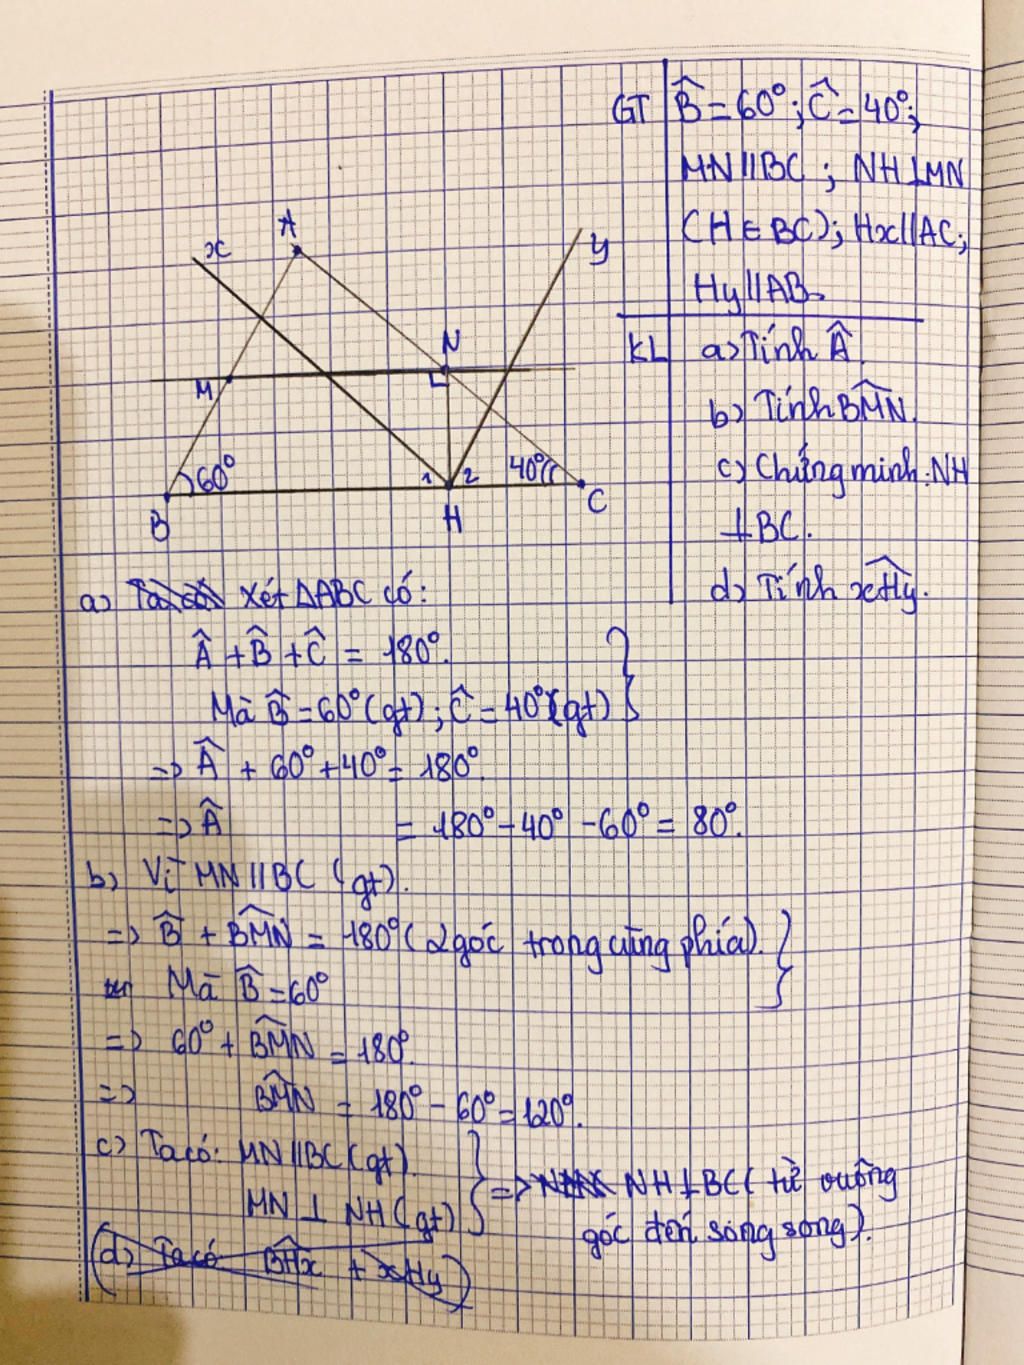 GT B̂ = 60°; Ĉ = 40°;
MN // BC ; NH ⊥ MN
(H ∈ BC); Hx // AC;
Hy // AB.
KL a) Tính Â.
b) Tính BM̂N.
c) Chứng minh: NH
⊥ BC.
d) Tính xĤy.
x A y
M N
60° 1 2 40°
B H C
a) Xét ΔABC có:
Â + B̂ + Ĉ = 180°.
Mà B̂ = 60° (gt); Ĉ = 40° (gt) }
=> Â + 60° + 40° = 180°.
=> Â = 180° - 40° - 60° = 80°.
b) Vì MN // BC (gt).
=> B̂ + BM̂N = 180° (2 góc trong cùng phía). }
Mà B̂ = 60°
=> 60° + BM̂N = 180°.
=> BM̂N = 180° - 60° = 120°.
c) Ta có: MN // BC (gt).
MN ⊥ NH (gt) } => NH ⊥ BC (từ vuông
góc đến song song).
(d) Ta có BĤx + xĤy)